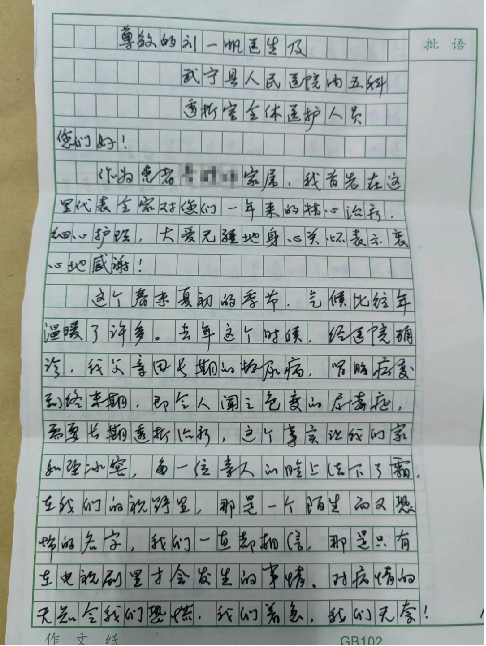 批语
尊敬的刘一帆医生及
武宁县人民医院内五科
透析室全体医护人员
您们好！
作为患者家属，我首先在这
里代表全家对您们一年来的精心治疗，
细心护理，大爱无疆地身心关怀表示衷
心地感谢！
这个春末夏初的季节，气候比往年
温暖了许多。去年这个时候，经医院确
诊，我父亲因长期的糖尿病，肾脏病变
到终末期，即令人闻之色变的尿毒症，
需要长期透析治疗，这个事实让我们家
如强冰窖，每一位亲人的脸上结下了霜，
在我们的视野里，那是一个陌生而又恐
怖的名字，我们一直都相信，那是只有
在电视剧里才会发生的事情。对病情的
无知令我们恐慌，我们着急，我们无奈！
作文纸
GB102